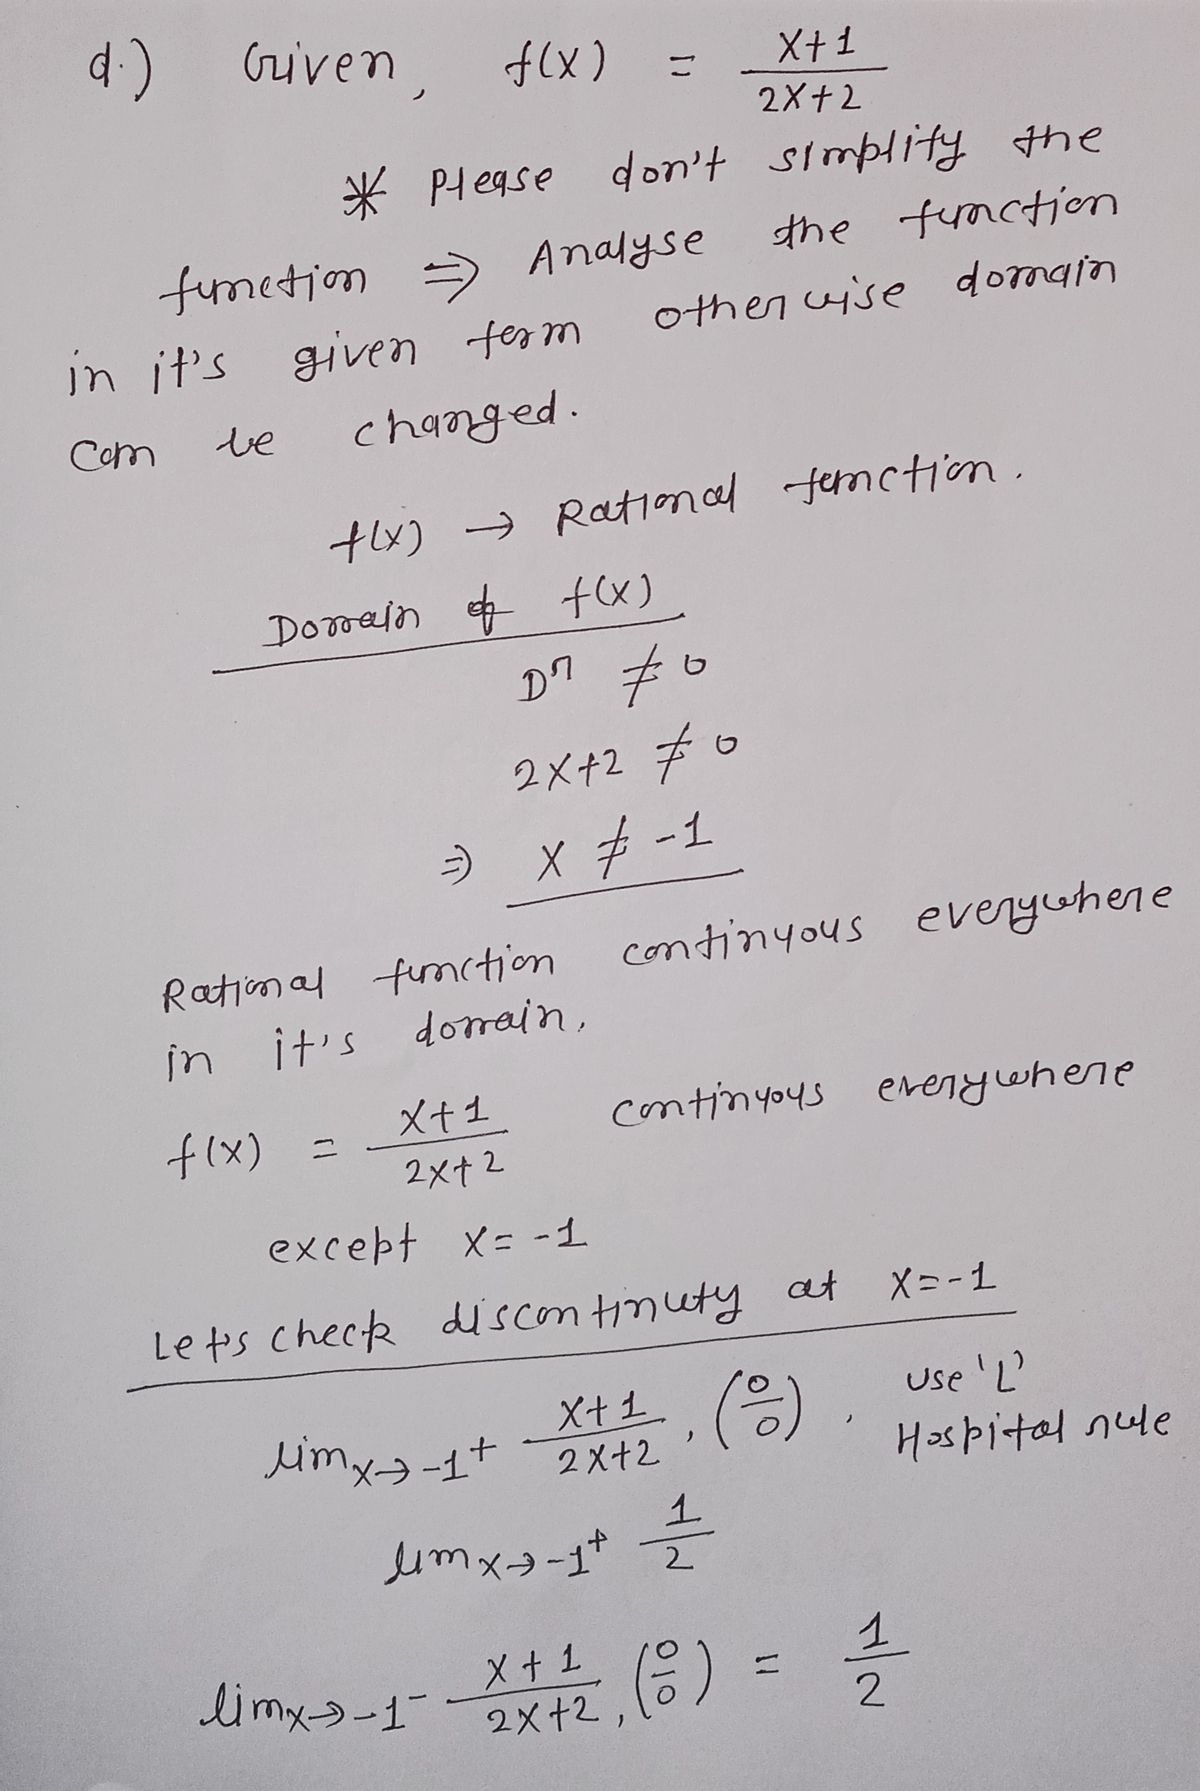 d.) Given, f(x) = x+1 / 2x+2
* Please don't simplify the
function ⇒ Analyse the function
in it's given term otherwise domain
can be changed.
f(x) → Rational function.
Domain of f(x)
Dn ≠ 0
2x+2 ≠ 0
⇒ x ≠ -1
Rational function continuous everywhere
in it's domain,
f(x) = x+1 / 2x+2 continuous everywhere
except x = -1
Let's check discontinuty at x=-1
lim x→-1+ x+1 / 2x+2 , (0/0) , use 'L'
Hospital rule
lim x→-1+ 1/2
lim x→-1- x+1 / 2x+2 , (0/0) = 1/2